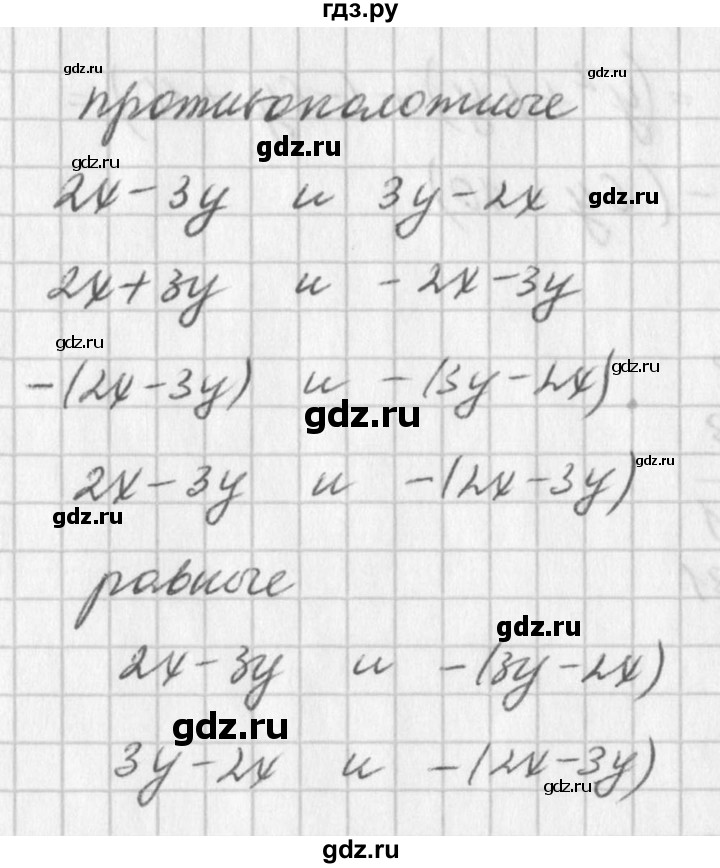 гдз.ру
gdz.ru
противоположные
gdz.ru
gdz.ru
2x-3y и 3y-2x
gdz.ru
2x+3y и -2x-3y
gdz.ru
gdz.ru
-(2x-3y) и -(3y-2x)
gdz.ru
2x-3y и -(2x-3y)
gdz.ru
gdz.ru
равные
gdz.ru
2x-3y и -(3y-2x)
gdz.ru
3y-2x и -(2x-3y)
gdz.ru
gdz.ru